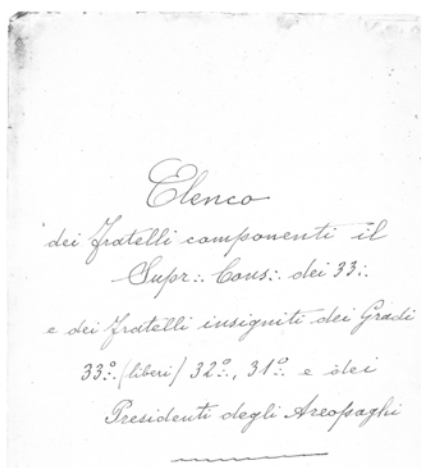 Elenco
dei fratelli componenti il
Supr∴ Cons∴ dei 33∴
e dei fratelli insigniti dei Gradi
33º∴ (liberi) 32º∴, 31º∴ e dei
Presidenti degli Areopaghi